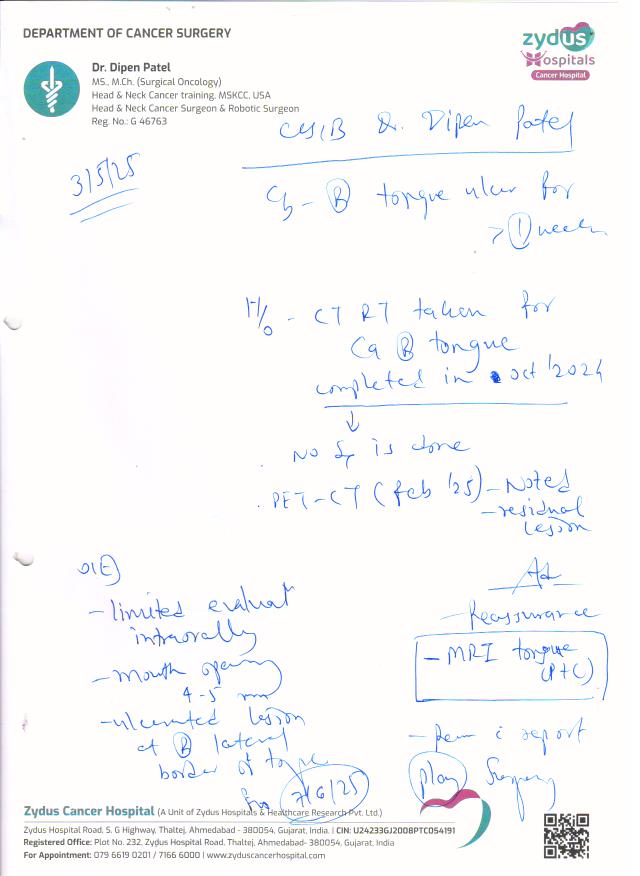 DEPARTMENT OF CANCER SURGERY
zydus
Hospitals
Cancer Hospital
Dr. Dipen Patel
MS., M.Ch. (Surgical Oncology)
Head & Neck Cancer training, MSKCC, USA
Head & Neck Cancer Surgeon & Robotic Surgeon
Reg. No.: G 46763
CS/B Dr. Dipen Patel
3/5/25
tongue ulcer for
> 1 week
H/o - CT RT taken for
Ca tongue
completed in Oct '2024
No Sx is done
PET-CT (Feb '25) - Noted
- residual
lesion
O/E)
- limited evaluat
intraorally
- mouth opening
4-5 mm
- ulcerated lesion
at lateral
border of tongue
Ad
- Reassurance
- MRI tongue
(P+C)
- report
plan Surgery
for 7/6/25
Zydus Cancer Hospital (A Unit of Zydus Hospitals & Healthcare Research Pvt. Ltd.)
Zydus Hospital Road, S. G Highway, Thaltej, Ahmedabad - 380054, Gujarat, India. | CIN: U24233GJ2008PTC054191
Registered Office: Plot No. 232, Zydus Hospital Road, Thaltej, Ahmedabad- 380054, Gujarat, India.
For Appointment: 079 6619 0201 / 7166 6000 | www.zyduscancerhospital.com